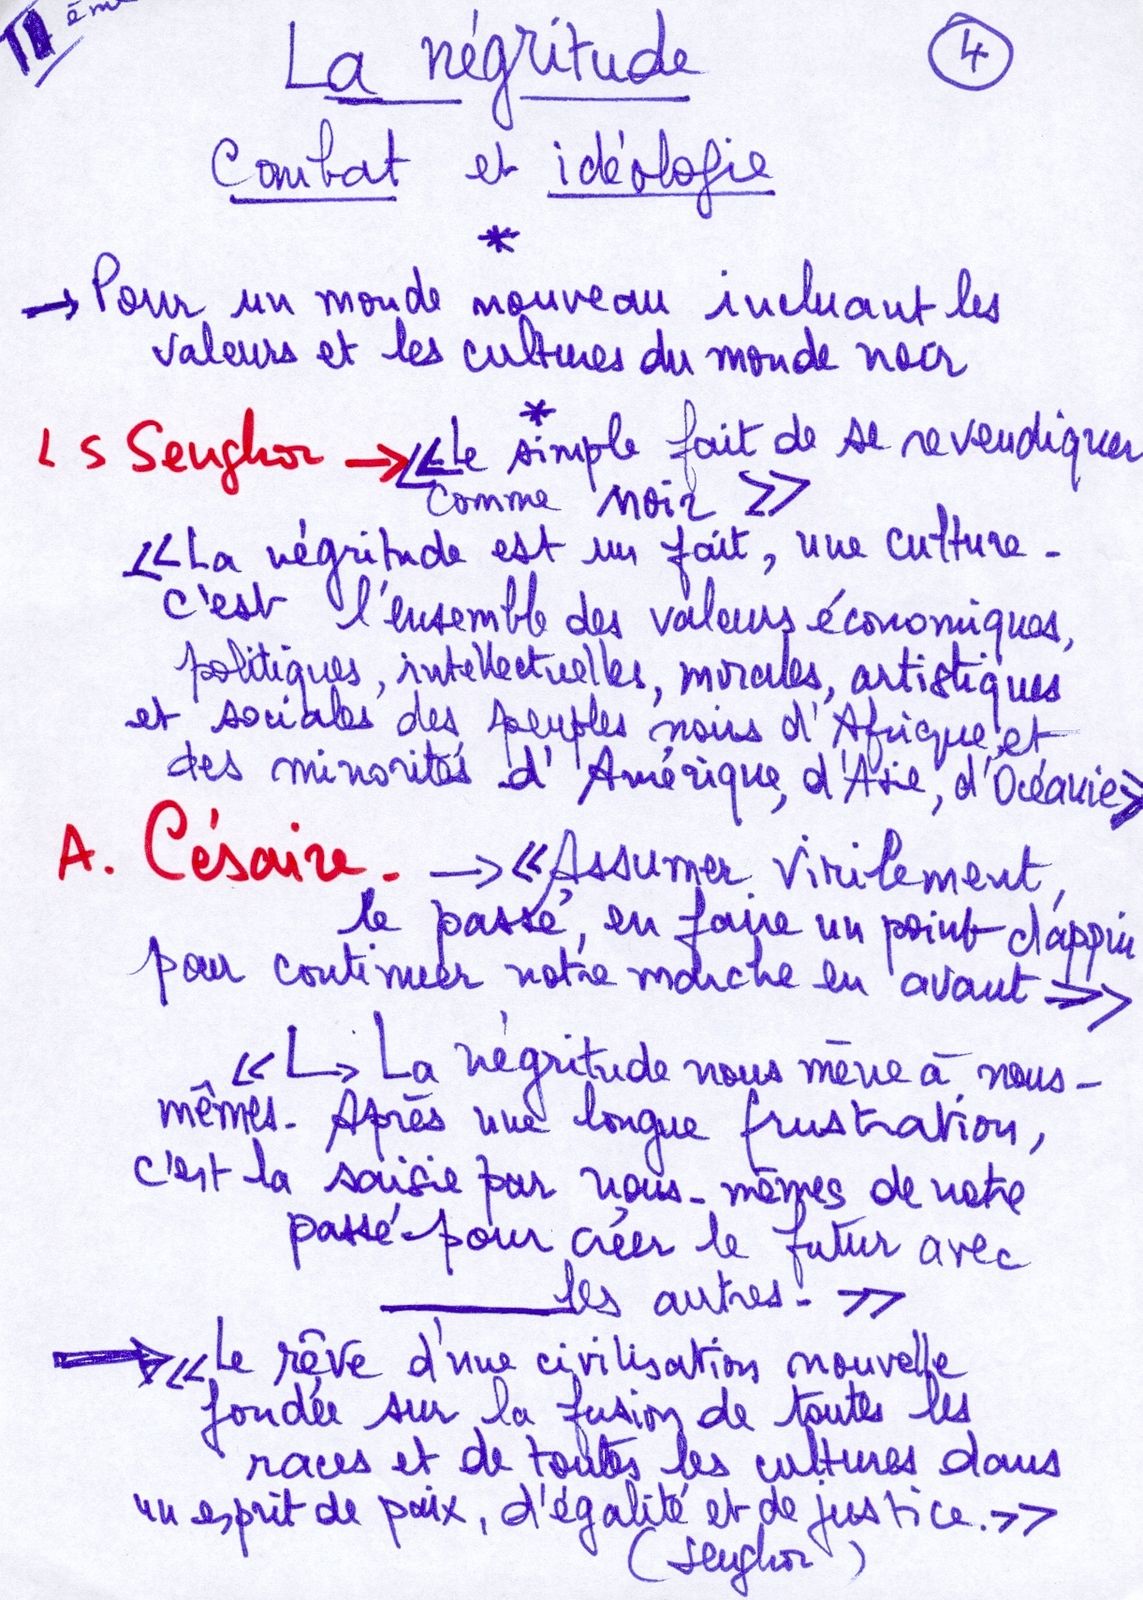 ème
La négritude
4
Combat et idéologie
*
→ Pour un monde nouveau incluant les
valeurs et les cultures du monde noir
*
L S Senghor → « Le simple fait de se revendiquer
comme noir »
« La négritude est un fait, une culture -
c'est l'ensemble des valeurs économiques,
politiques, intellectuelles, morales, artistiques
et sociales des peuples noirs d'Afrique et
des minorités d'Amérique, d'Asie, d'Océanie »
A. Césaire - → « Assumer virilement,
le passé, en faire un point d'appui
pour continuer notre marche en avant »
« ↳ La négritude nous mène à nous-
mêmes. Après une longue frustration,
c'est la saisie par nous-mêmes de notre
passé - pour créer le futur avec
les autres. »
→ « Le rêve d'une civilisation nouvelle
fondée sur la fusion de toutes les
races et de toutes les cultures dans
un esprit de paix, d'égalité et de justice. »
(Senghor)